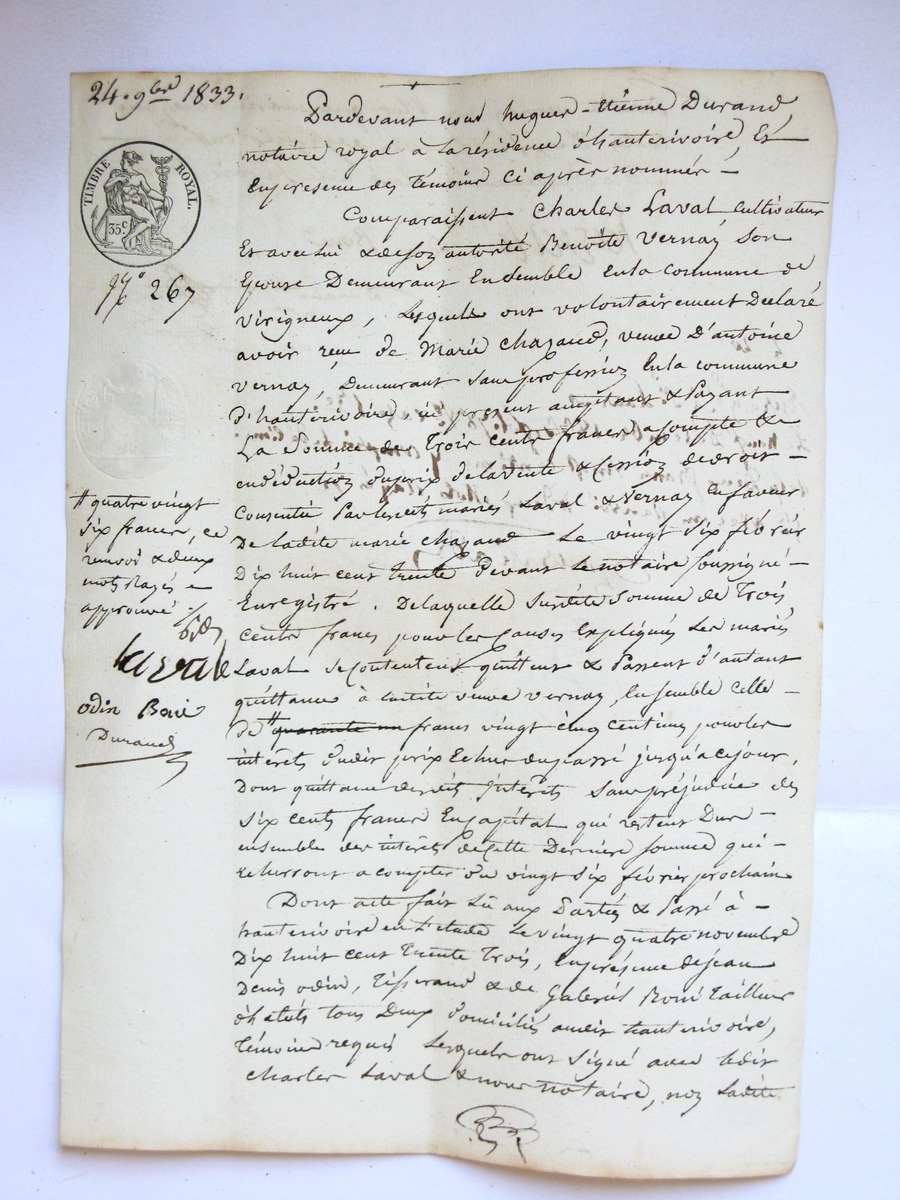 24. 9bre 1833.
TIMBRE ROYAL.
35c
No 267
Pardevant nous hugues-Etienne Durand
notaire royal à la résidence d'hauterivoire, Et
En presence des Temoins ci après nommés -
Comparaissent Charles Laval, cultivateur
Et avec lui & de son autorité Benoite Vernay son
Epouse Demeurant Ensemble En la commune de
virigneux, Lesquels ont volontairement Declaré
avoir reçu de Marie Chazaud, veuve D'antoine
vernay, Demeurant sans profession En la commune
D'hauterivoire, ici present acceptant & Payant
La Somme de Trois cents francs a compte &
en déduction du prix de la vente & Cession de droit -
Consentie Par lesdits mariés Laval & Vernay En faveur
De ladite marie chazaud Le vingt six février
Dix huit cent trente Devant le notaire soussigné -
Enregistré. De laquelle susdite Somme de Trois
cents francs pour les causes Expliquées Les mariés
Laval se contentent quittent & Passent d'autant
quittance à ladite veuve vernay, Ensemble celle -
de # quarante un francs vingt cinq centimes pour les
interêts dudit prix Echus du passé jusqu'à ce jour,
Dont quittance desdits Interêts sans préjudice des
Six cents francs En capital qui restent Dus -
ensemble des interêts de cette Derniere somme qui -
Echerront a compter du vingt six février prochain
Dont acte fait Lû aux Parties & Passé à -
hauterivoire en l'étude Le vingt quatre novembre
Dix huit cent Trente Trois, En présence de jean
Denis odin, Tisserand & de Gabriel Boni Tailleur
d'habits tous Deux domiciliés audit hauterivoire,
Témoins requis Lesquels ont signé avec ledit
Charles Laval & nous notaire, non Ladite
# quatre vingt
six francs, ce
renvoi & deux
mots Rayés
approuvé
Laval
odin Boni
Durand